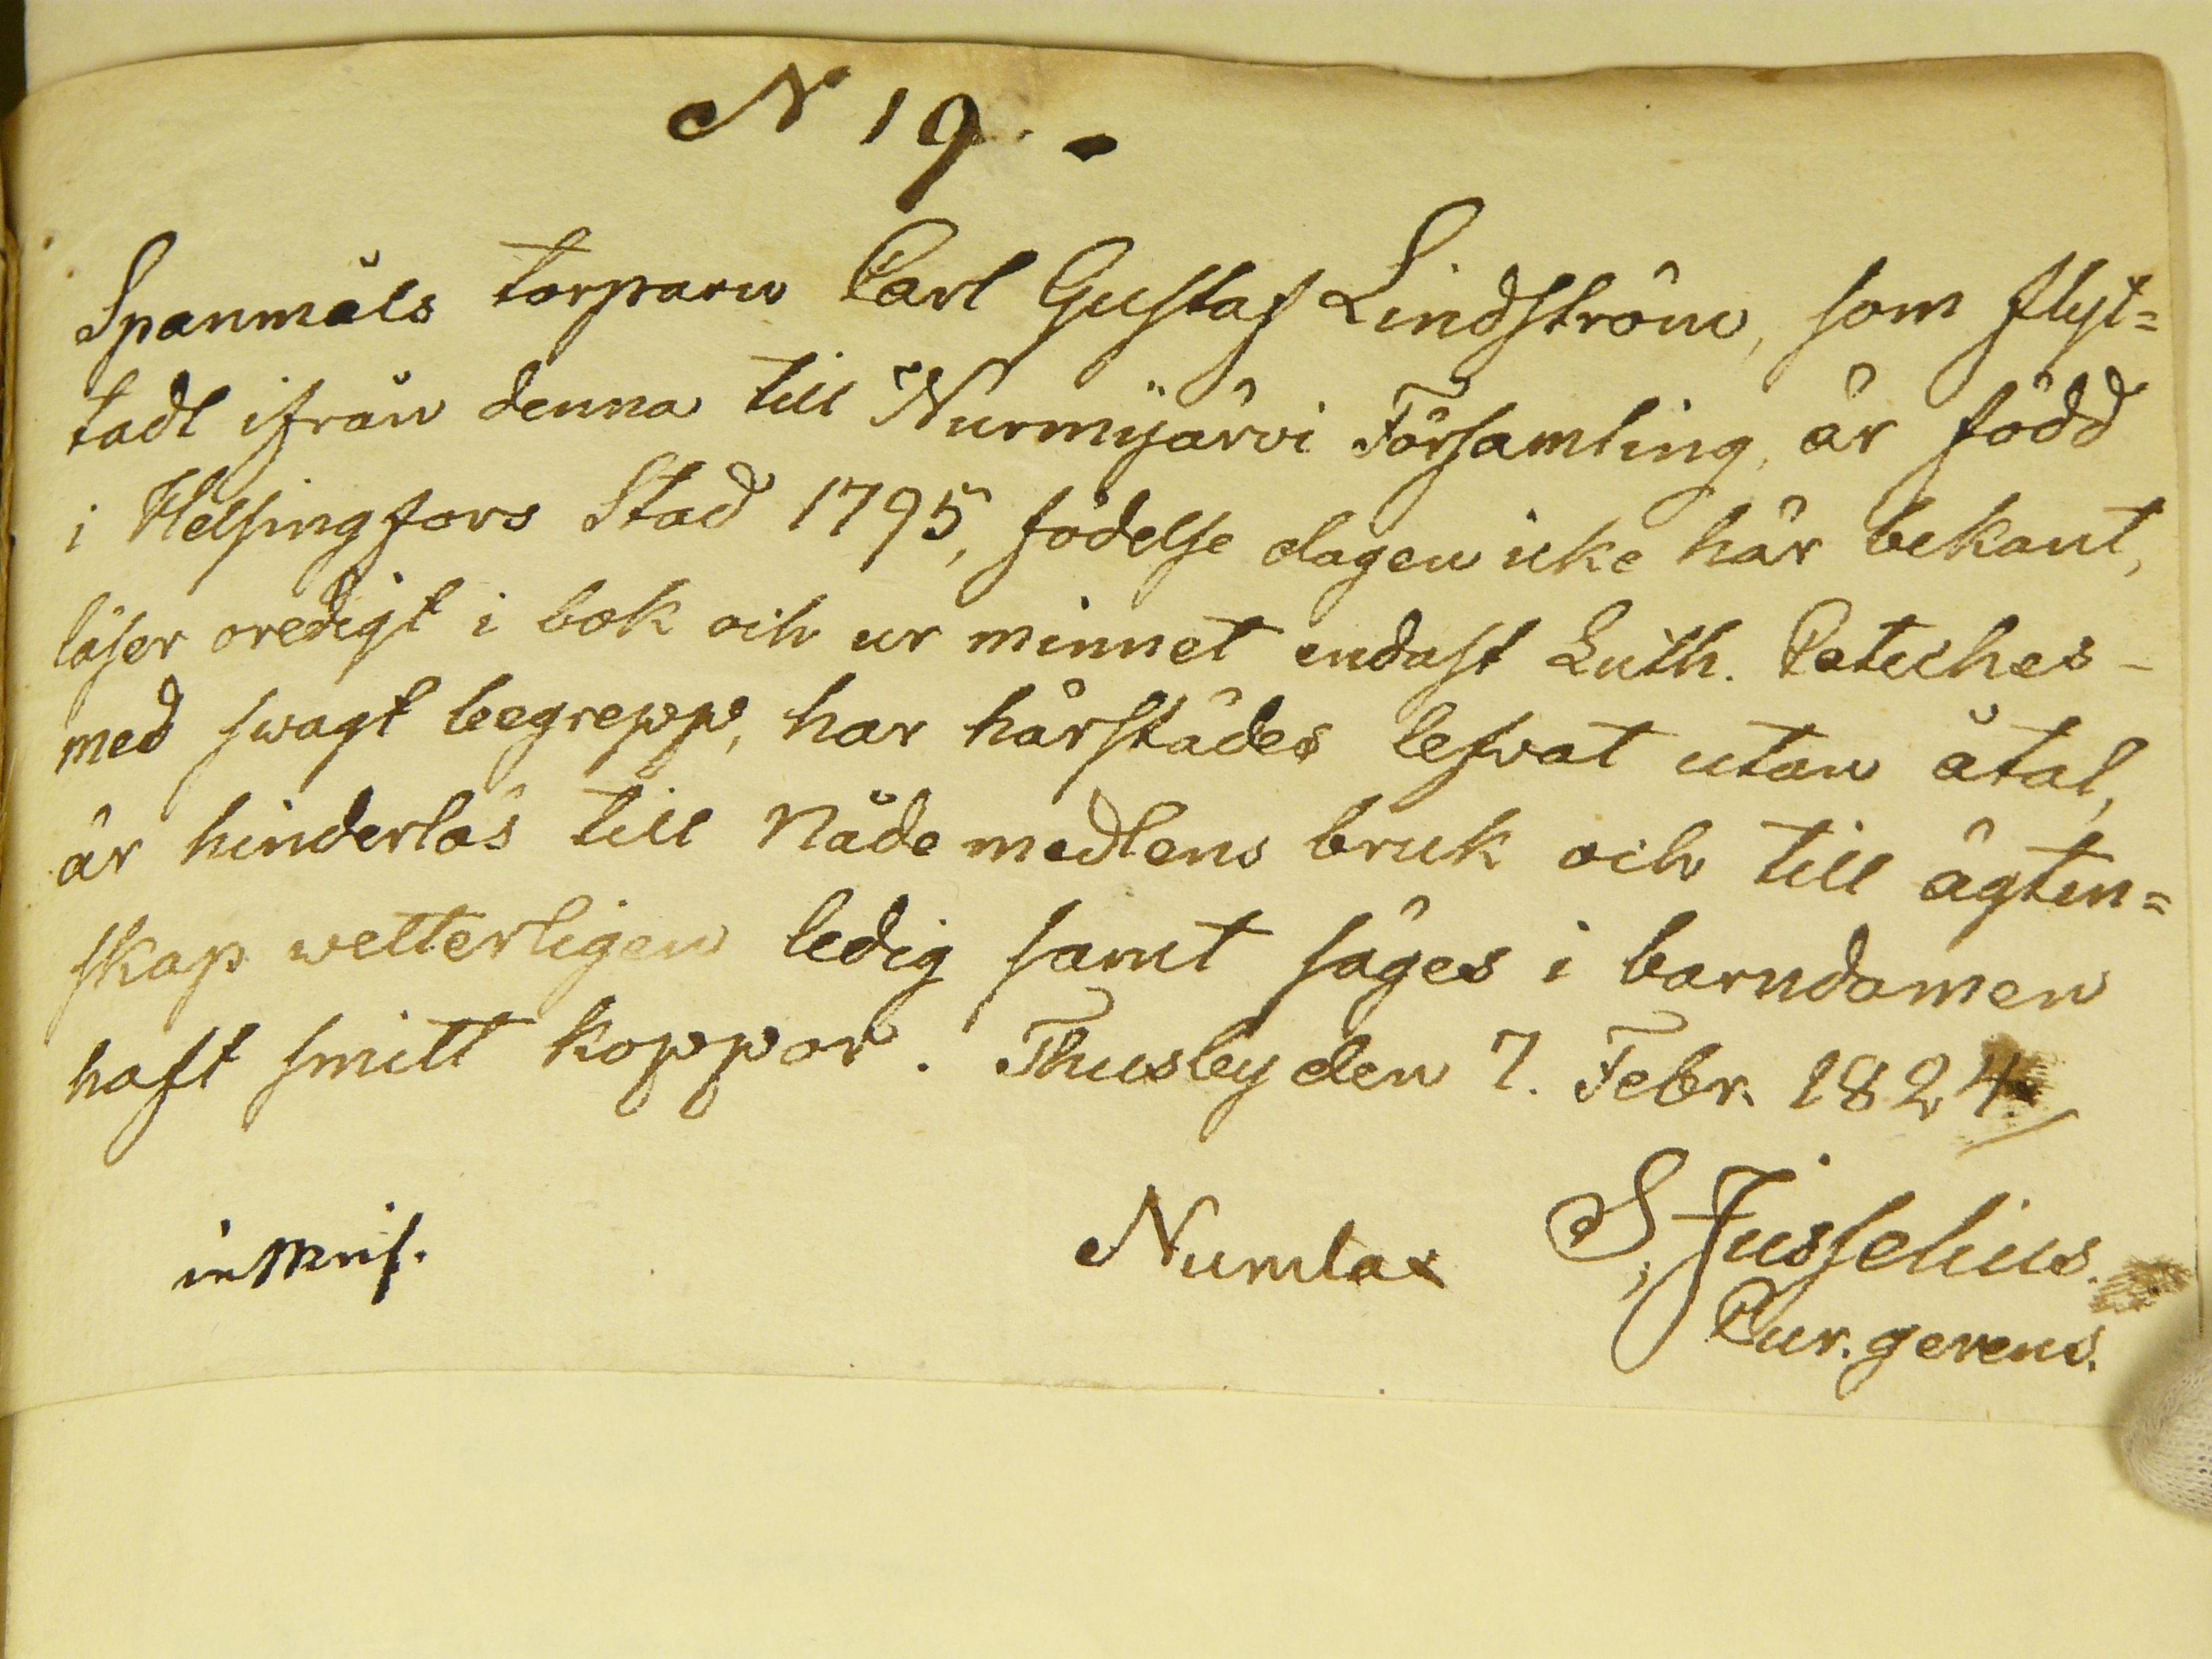 N 19.
Spanmåls torparn Carl Gustaf Lindström, som flyt=
tadt ifrån denna till Nurmijärvi Församling, är född
i Helsingfors Stad 1795, födelse dagen icke här bekant,
läser oredigt i bok och ur minnet endast Luth. Cateches -
med swagt begrepp, har härstädes lefvat utan åtal,
är hinderlös till Nådemedlens bruk och till ägten=
skap wetterligen ledig samt säges i barndomen
haft smitt koppor. Thusby den 7. Febr. 1824.
Numlax S. Jusselius.
Cur. gerens.